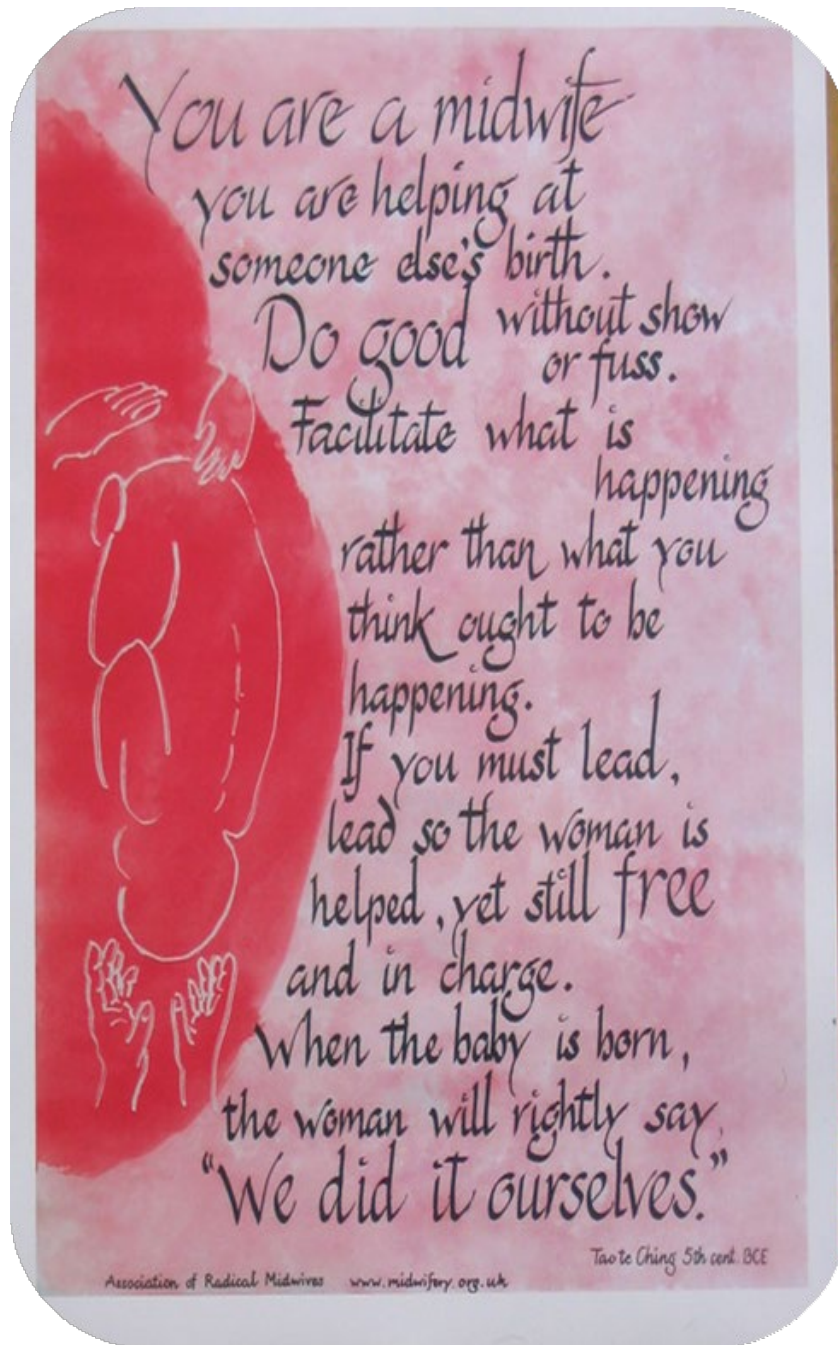 You are a midwife
you are helping at
someone else's birth.
Do good without show
or fuss.
Facilitate what is
happening
rather than what you
think ought to be
happening.
If you must lead,
lead so the woman is
helped, yet still free
and in charge.
When the baby is born,
the woman will rightly say,
"We did it ourselves."
Tao te Ching 5th cent. BCE
Association of Radical Midwives www.midwifery.org.uk